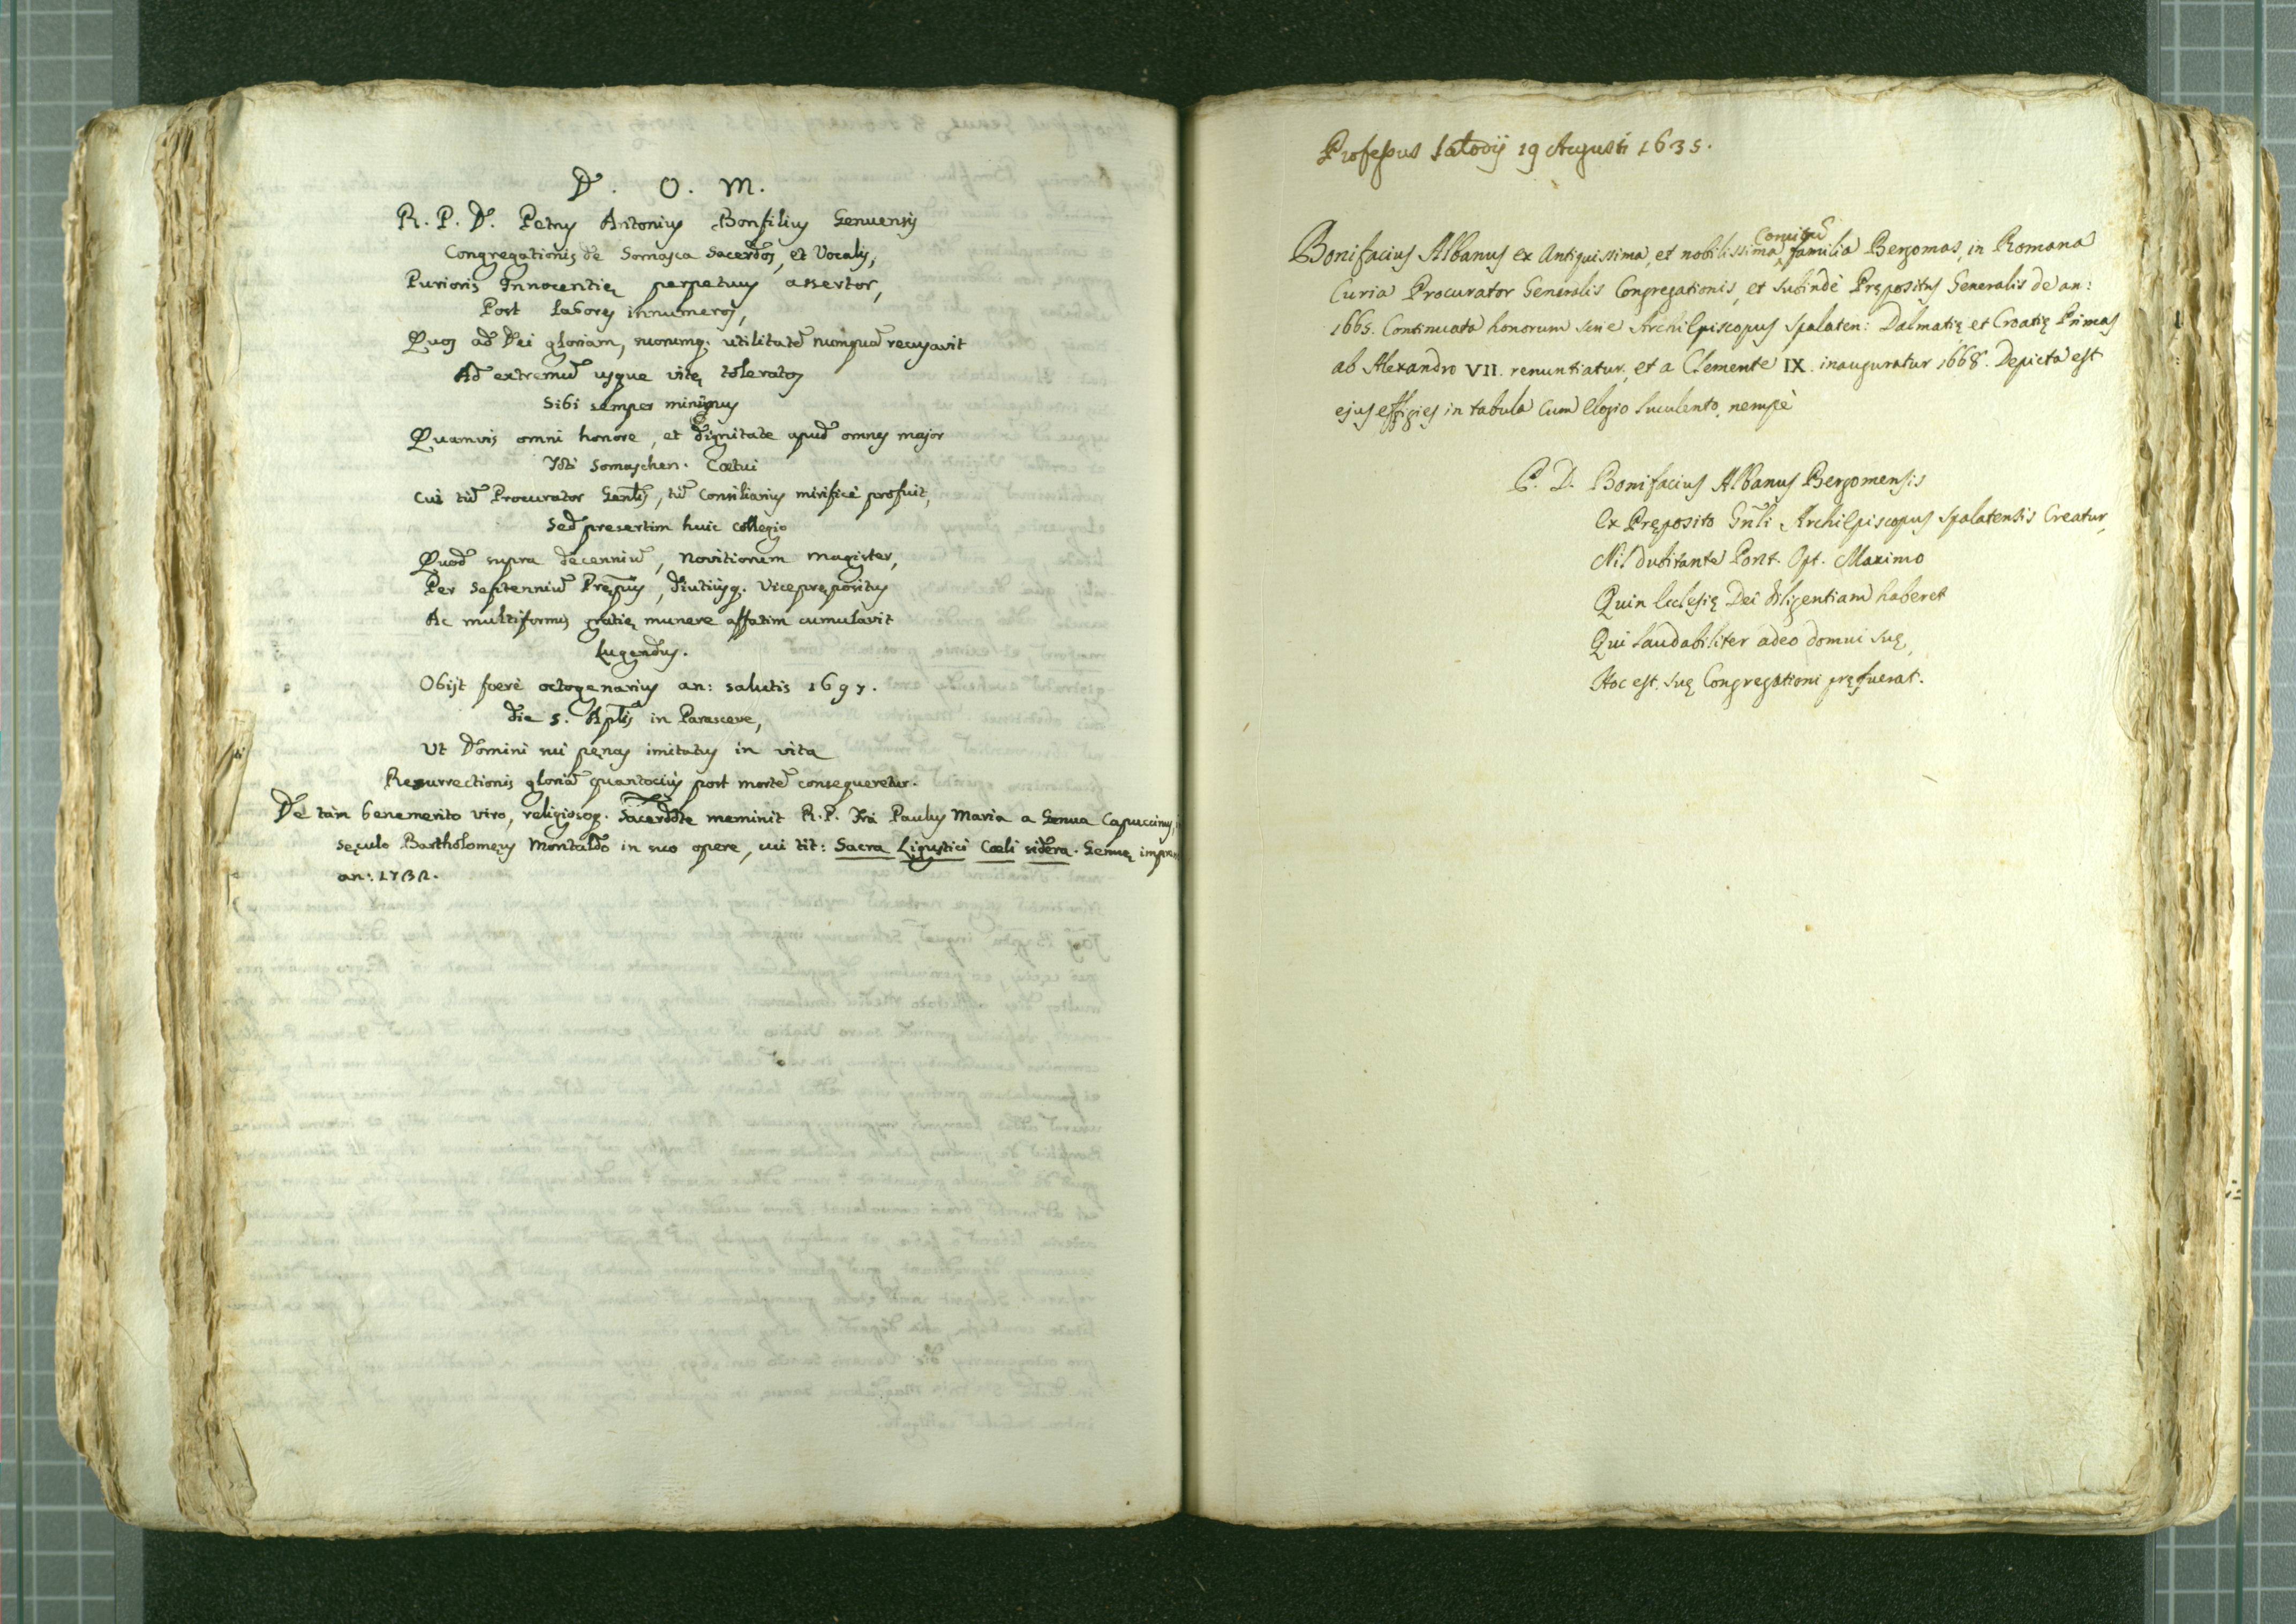 D. O. M.
R. P. D. Petrus Antonius Bonfilius Genuensis
Congregationis de Somasca Sacerdos, et Vocalis,
Purioris Innocentię perpetuus assertor,
Post labores innumeros,
Quos ad Dei gloriam, suorumq. utilitatē nunquā recusavit
Ad extremū usque vitę toleratos
Sibi semper minimus
Quamvis omni honore, et dignitate apud omnes major
Toti Somaschen. Cœtui
Cui tū Procurator Genlis, tū Consiliarius mirificè profuit,
Sed presertim huic collegio
Quod supra decenniū, Novitiorum Magister,
Per Septenniū Pręptus, diutiusq. Viceprępositus
Ac multiformis gratię munere affatim cumulavit
Lugendus.
Obijt ferè octogenarius an: salutis 1697.
die 5. Aplis in Parasceve,
Ut Domini sui pęnas imitatus in vita
Resurrectionis gloriā quantocius post mortē consequeretur.
De tàm benemerito viro, religiosoq. Sacerdote meminit R. P. Frà Paulus Maria a Genua Capuccinus,
sęculo Bartholomęus Montaldo in suo opere, cui tit: Sacra Ligustici Cœli sidera. Genuę
an: 1732.
Professus Salodij 19 Augusti 1635.
Comitū
Bonifacius Albanus ex Antiquissima, et nobilissima familia Bergomas, in Romana
Curia Procurator Generalis Congregationis, et subindè Prępositus Generalis de an:
1665. Continuata honorum serie Archiepiscopus Spalaten: Dalmatię et Croatię Primas
ab Alexandro VII. renuntiatur, et a Clemente IX. inauguratur 1668. Depicta est
ejus effigies in tabula cum elogio luculento, nempè
P. D. Bonifacius Albanus Bergomensis
Ex Pręposito Gnli Archiepiscopus Spalatensis Creatur,
Nil dubitante Pont. Opt. Maximo
Quin Ecclesię Dei diligentiam haberet
Qui laudabiliter adeo domui suę,
Hoc est, suę Congregationi pręfuerat.